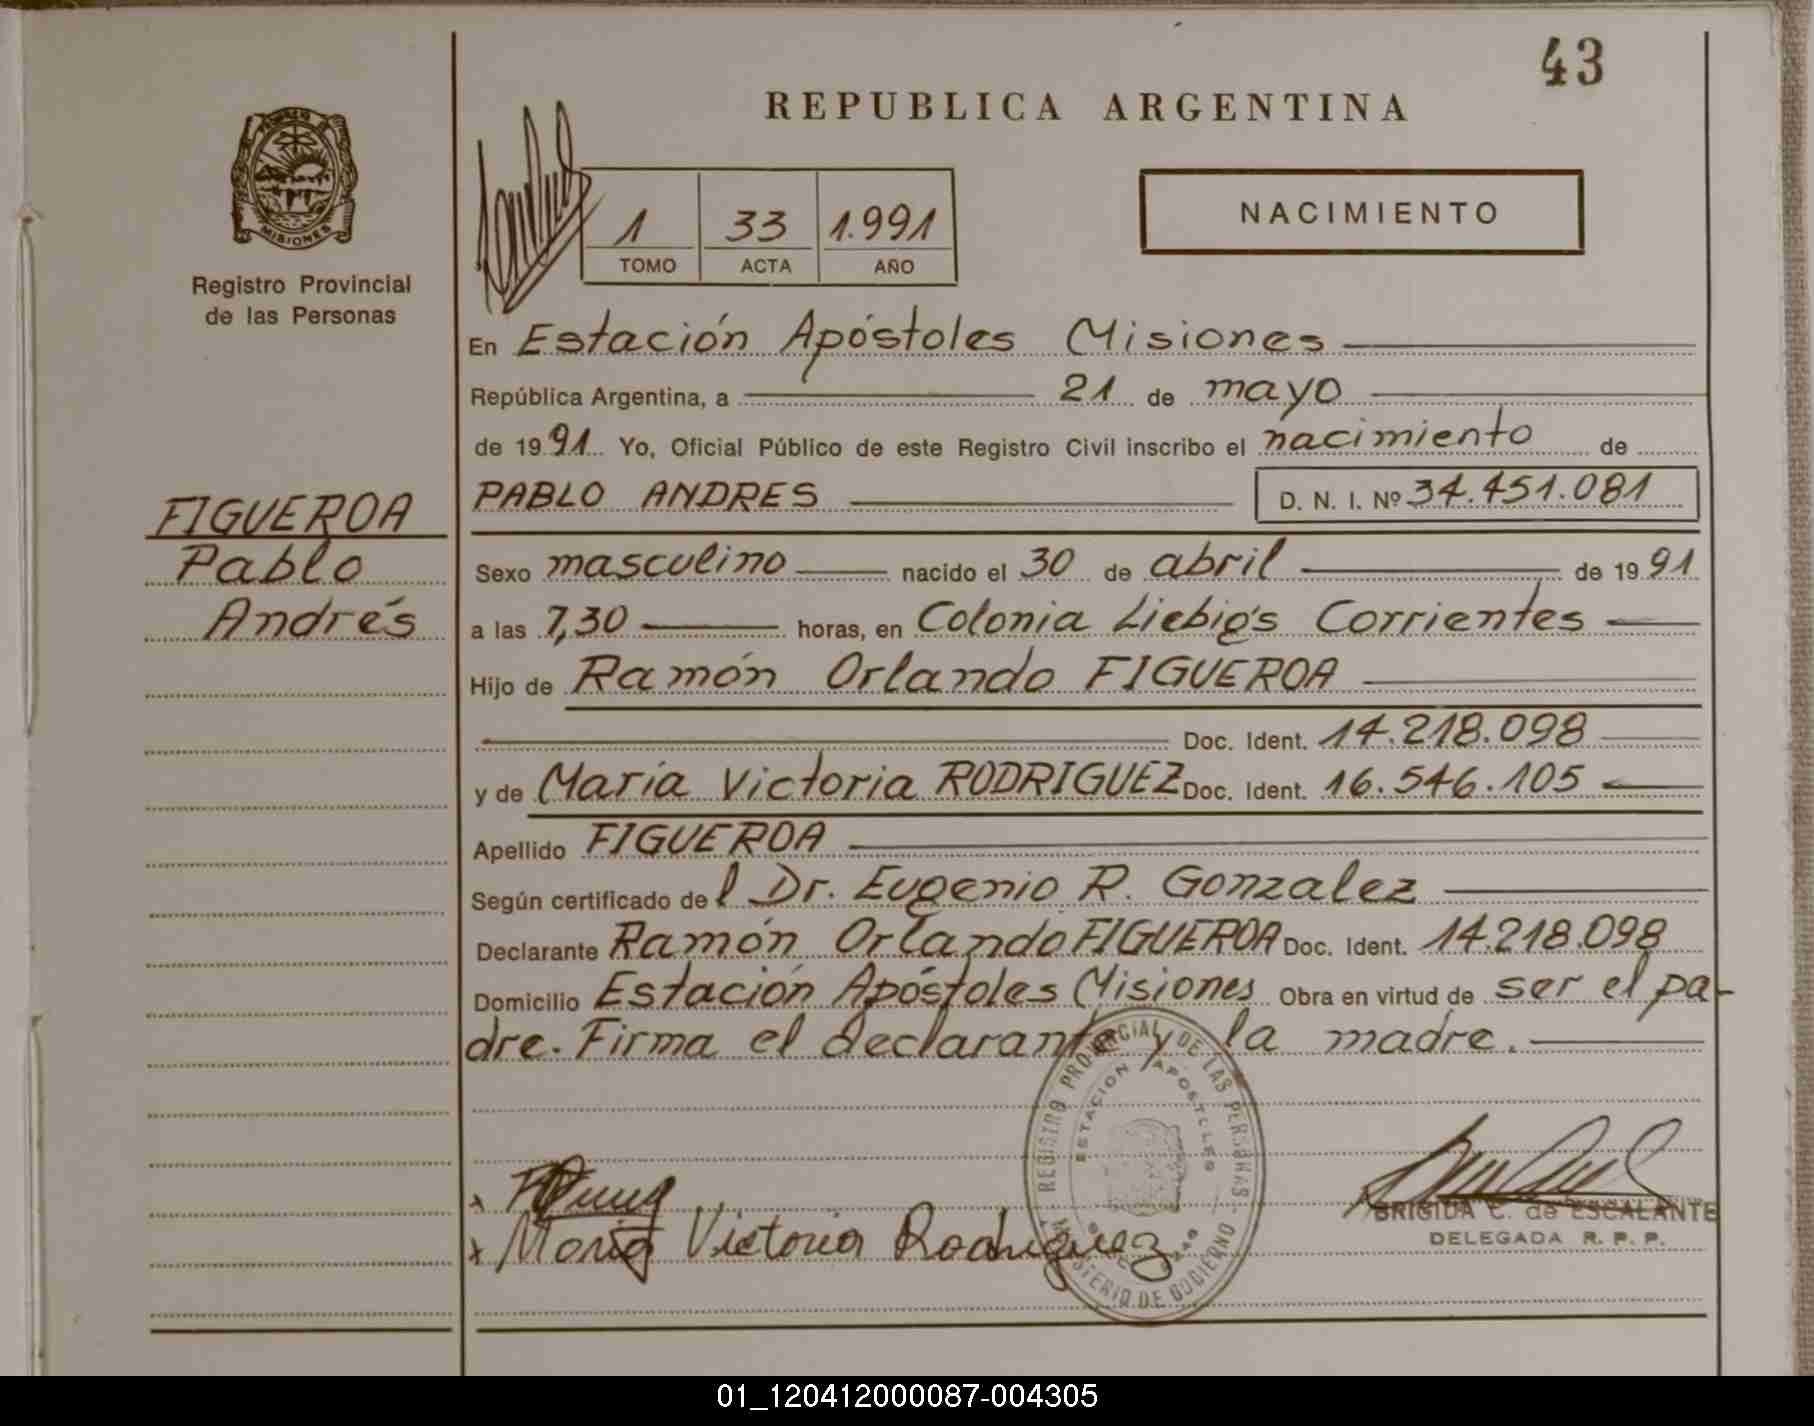 43
REPUBLICA ARGENTINA
MISIONES
Registro Provincial
de las Personas
1 33 1.991
TOMO ACTA AÑO
NACIMIENTO
En Estación Apóstoles Misiones
República Argentina, a 21 de mayo
de 1991 Yo, Oficial Público de este Registro Civil inscribo el nacimiento de
PABLO ANDRES D. N. I. Nº 34.451.081
FIGUEROA
Pablo
Andrés
Sexo masculino nacido el 30 de abril de 1991
a las 7,30 horas, en Colonia Liebig's Corrientes
Hijo de Ramón Orlando FIGUEROA
Doc. Ident. 14.218.098
y de María Victoria RODRIGUEZ Doc. Ident. 16.546.105
Apellido FIGUEROA
Según certificado del Dr. Eugenio R. Gonzalez
Declarante Ramón Orlando FIGUEROA Doc. Ident. 14.218.098
Domicilio Estación Apóstoles Misiones Obra en virtud de ser el pa-
dre. Firma el declarante y la madre.
REGISTRO PROVINCIAL DE LAS PERSONAS
ESTACION APOSTOLES
MINISTERIO DE GOBIERNO
x
x Maria Victoria Rodriguez
BRIGIDA C. de ESCALANTE
DELEGADA R. P. P.
01_120412000087-004305